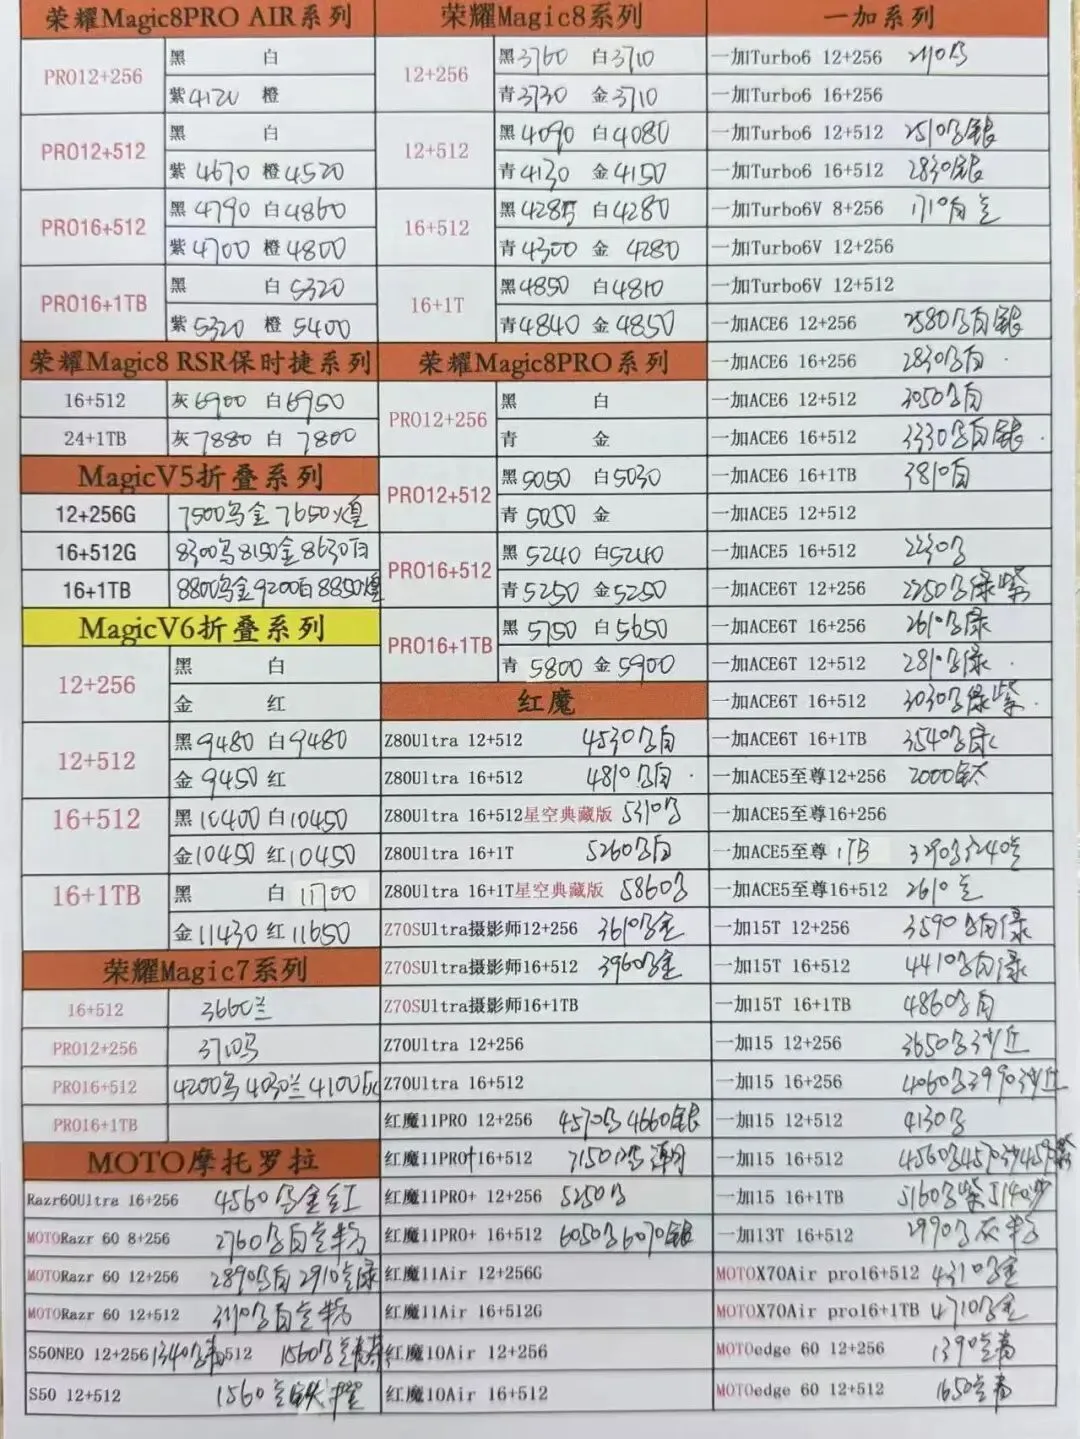 荣耀Magic8PRO AIR系列
PRO12+256
黑 白
紫4120 橙
PRO12+512
黑 白
紫 4670 橙4520
PRO16+512
黑 4790 白4860
紫4700 橙4800
PRO16+1TB
黑 白 5320
紫 5320 橙 5400
荣耀Magic8 RSR保时捷系列
16+512 灰6900 白6950
24+1TB 灰7880 白 7800
MagicV5折叠系列
12+256G 7500乌金 7650煌
16+512G 8300乌8150金8630白
16+1TB 8800乌金9200白8850煌
MagicV6折叠系列
12+256
黑 白
金 红
12+512
黑9480 白9480
金 9450 红
16+512
黑10400 白10450
金10450 红10450
16+1TB
黑 白 11700
金11430 红11650
荣耀Magic7系列
16+512 3660兰
PRO12+256
PRO16+512 4200 4030兰 4100
PRO16+1TB
MOTO摩托罗拉
Razr60Ultra 16+256 4560 金红
MOTORazr 60 8+256 2760
MOTORazr 60 12+256 2890 2910
MOTORazr 60 12+512
S50NEO 12+256 1340 512 1560
S50 12+512 1560
荣耀Magic8系列
12+256
黑3760 白3710
青3730 金3710
12+512
黑4090 白4080
青4130 金4150
16+512
黑 白4280
青4300 金 4280
16+1T
黑4850 白4810
青4840 金4850
荣耀Magic8PRO系列
PRO12+256
黑 白
青 金
PRO12+512
黑5050 白5030
青 5050 金
PRO16+512
黑 5240 白5240
青5250 金5250
PRO16+1TB
黑 5750 白5650
青 5800 金5900
红魔
Z80Ultra 12+512 4530
Z80Ultra 16+512 4810
Z80Ultra 16+512星空典藏版 5310
Z80Ultra 16+1T 5260
Z80Ultra 16+1T星空典藏版 5860
Z70SUltra摄影师12+256 3610 金
Z70SUltra摄影师16+512 3960 金
Z70SUltra摄影师16+1TB
Z70Ultra 12+256
Z70Ultra 16+512
红魔11PRO 12+256 4570 4660银
红魔11PRO+16+512
红魔11PRO+ 12+256 5250
红魔11PRO+ 16+512 6050 6070银
红魔11Air 12+256G
红魔11Air 16+512G
红魔10Air 12+256
红魔10Air 16+512
一加系列
一加Turbo6 12+256
一加Turbo6 16+256
一加Turbo6 12+512 2510 银
一加Turbo6 16+512 2830银
一加Turbo6V 8+256 1710
一加Turbo6V 12+256
一加Turbo6V 12+512
一加ACE6 12+256 2580 银
一加ACE6 16+256 2830
一加ACE6 12+512 3050
一加ACE6 16+512 3330 银
一加ACE6 16+1TB 3810
一加ACE5 12+512
一加ACE5 16+512 2230
一加ACE6T 12+256 2250 绿紫
一加ACE6T 16+256 2610 绿
一加ACE6T 12+512 2810 绿
一加ACE6T 16+512 3030 绿紫
一加ACE6T 16+1TB 3540 绿
一加ACE5至尊12+256 2000钛
一加ACE5至尊16+256
一加ACE5至尊 1TB 3290 3240
一加ACE5至尊16+512 2610
一加15T 12+256 3590 绿
一加15T 16+512 4410 绿
一加15T 16+1TB 4860
一加15 12+256 3650 沙丘
一加15 16+256 4060 3990沙丘
一加15 12+512 4130
一加15 16+512 4560
一加15 16+1TB 5160 紫5140沙
一加13T 16+512 2990 灰
MOTOX70Air pro16+512 4310 金
MOTOX70Air pro16+1TB 4710 金
MOTOedge 60 12+256 1390
MOTOedge 60 12+512 1650